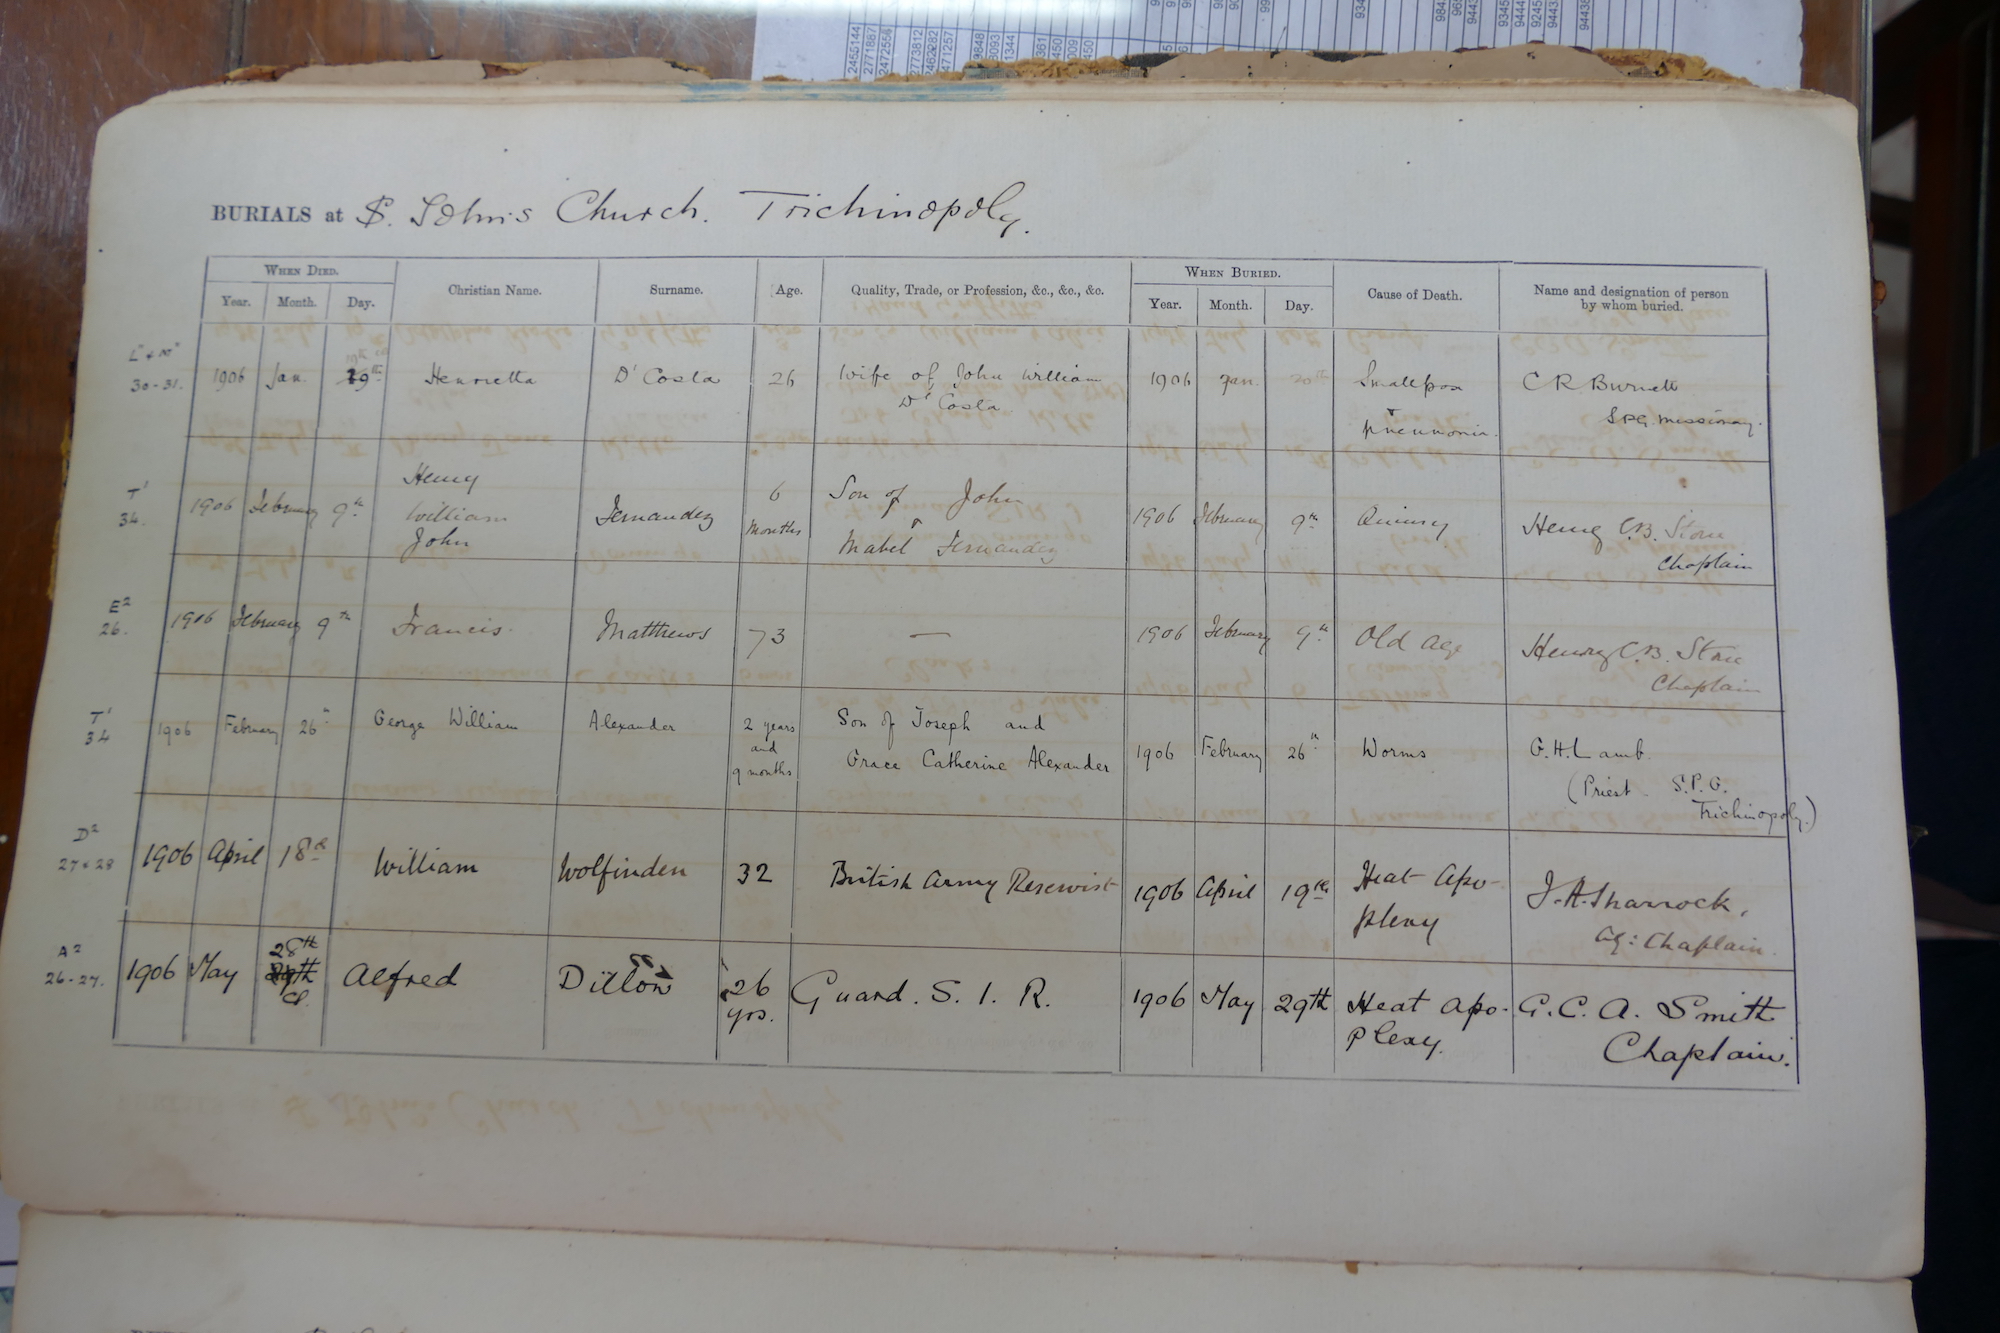 BURIALS at St. John's Church. Trichinopoly.
WHEN DIED. Christian Name. Surname. Age. Quality, Trade, or Profession, &c., &c., &c. WHEN BURIED. Cause of Death. Name and designation of person by whom buried.
Year. Month. Day. Year. Month. Day.
30-31. 1906 Jan. 29th Henrietta D'Costa 26 Wife of John William 1906 Jan. 30th Smallpox C R Burnett
D'Costa & S.P.G. Missionary.
pneumonia.
T1 Henry 6 Son of John
34. 1906 February 9th William Fernandez months & 1906 February 9th Quinsy Henry C.B. Stone
John Mabel Fernandez Chaplain
E2
26. 1906 February 9th Francis. Matthews 73 — 1906 February 9th Old age Henry C.B. Stone
Chaplain
T1 George William Alexander 2 years Son of Joseph and
34 1906 February 26th and Grace Catherine Alexander 1906 February 26th Worms G.H. Lamb
9 months (Priest S.P.G.
Trichinopoly.)
D2
27 & 28 1906 April 18th William Wolfinden 32 British Army Reservist 1906 April 19th Heat Apo- J.A. Sharrock,
plexy Ag: Chaplain.
A2 28th
26-27. 1906 May 29th Alfred Dillon 26 Guard. S. I. R. 1906 May 29th Heat Apo- G. C. A. Smith
yrs. plexy. Chaplain.
2445144
2771887
2472556
2773812
2462282
471257